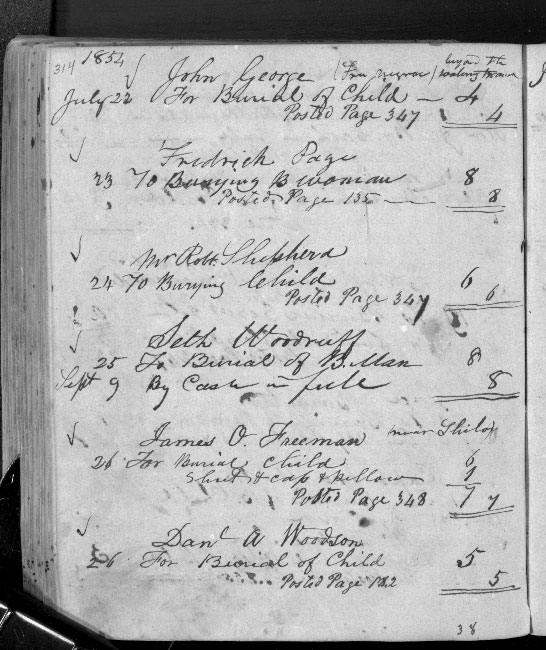 314 1854
John George (Free negro) beyond the
July 22 For Burial of Child — 4
Posted Page 347 4
Fredrich Page
23 To Burying B woman 8
Posted Page 135 — 8
Mr Robt. Shepherd
24 To Burying Child 6
Posted Page 347 6
Seth Woodruff
25 To Burial of B. Man 8
Sept 9 By Cash in full 8
James O. Freeman near Shiloh
26 For Burial Child 6
Sheet & cap & Pillow 1
Posted Page 348 7 7
Danl A Woodson
26 For Burial of Child 5
Posted Page 122 5
38